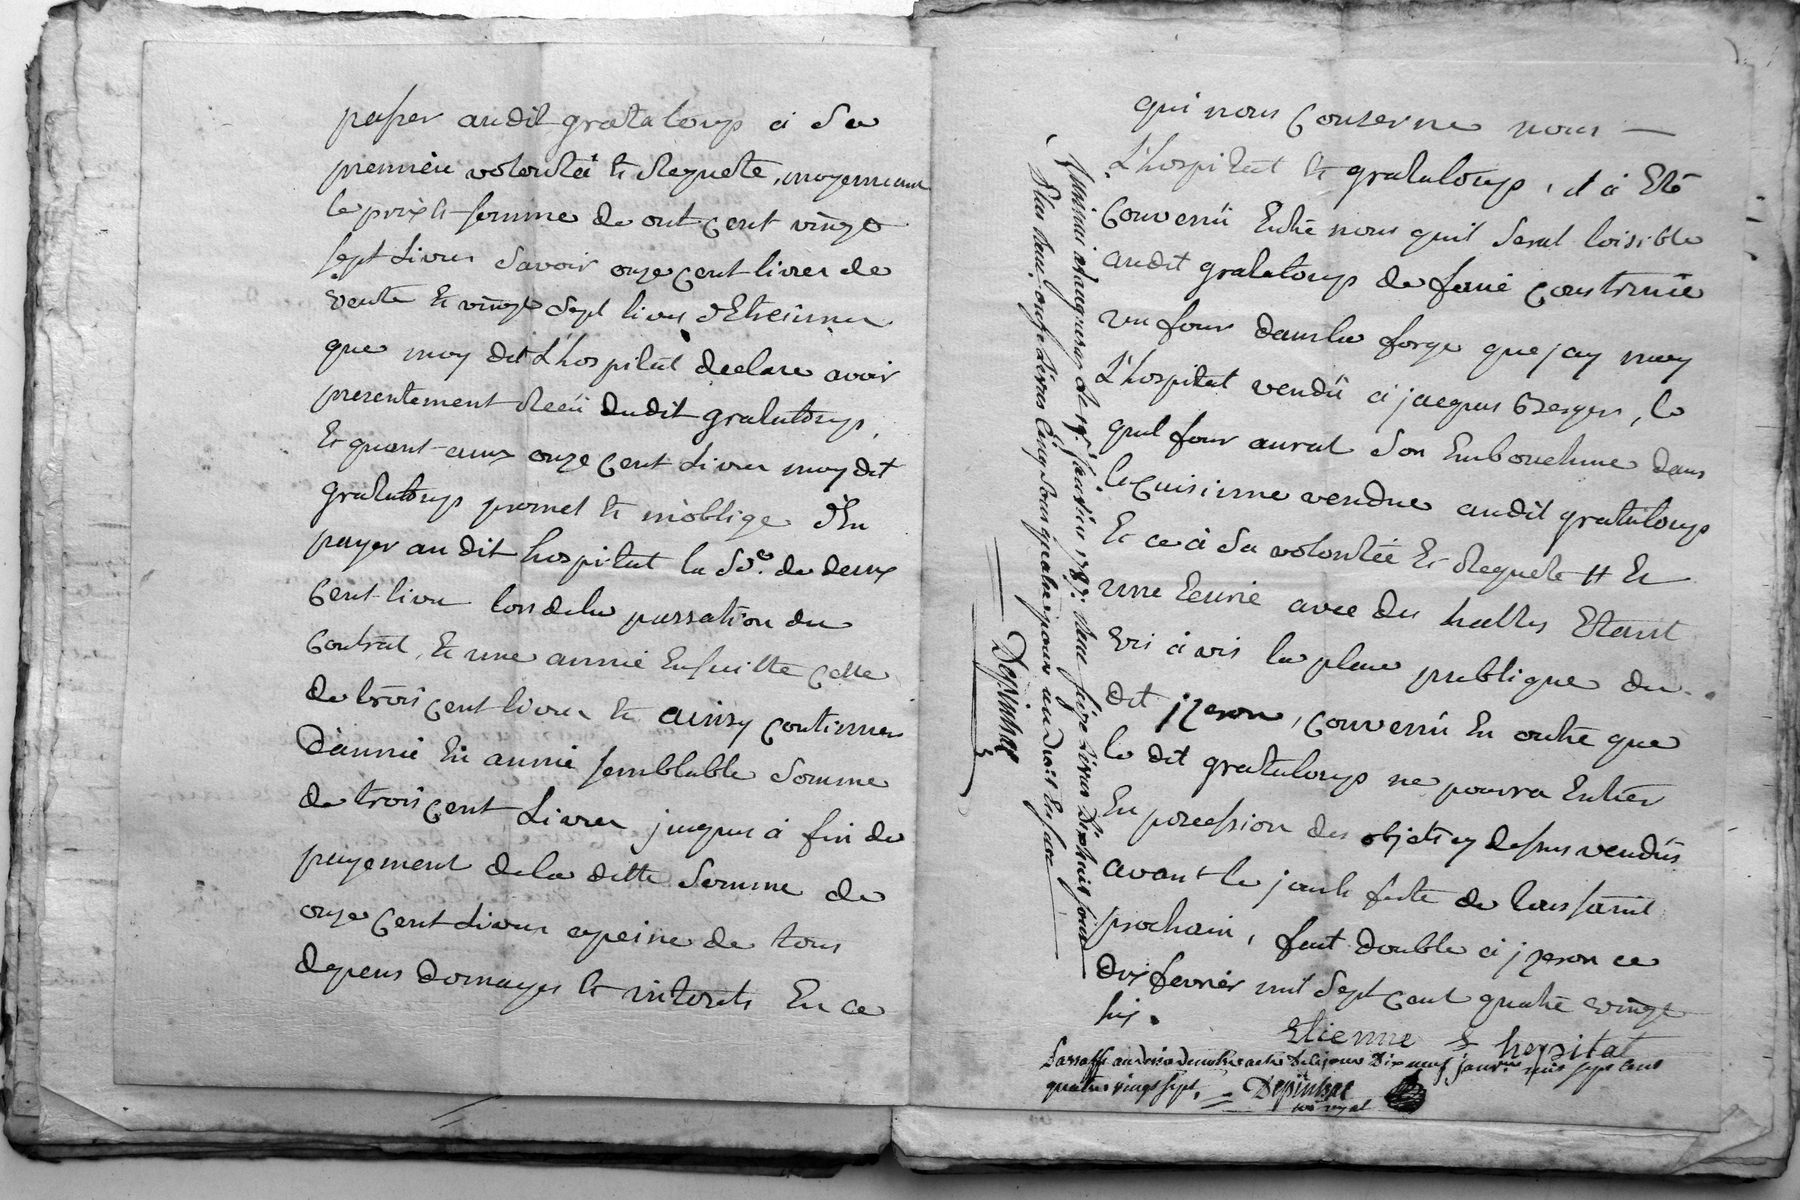 passer audit grataloup a sa
premiere volontée et Requete, moyennant
le prix et somme de ont cent vingt
sept Livres Savoir onze cent livres de
vente et vingt Sept livres d'Etreinnes
que moy dit L'hospital declare avoir
presentement Recü dudit grataloup,
Et quant-aux onze cent Livres moy dit
grataloup promet et m'oblige d'En
payer au dit hospital la So.e de deux
Cent livres lors de la passation du
Contrat, et une année Ensuitte celle
de trois cent livres et ainsy continuer
D'année En année semblable Somme
de trois cent Livres jusques a fin de
payement de la ditte Somme de
onze cent Livres a peine de tous
depens domages et interets En ce
qui nous Conserne nous —
L'hospital et grataloup, il a Eté
Convenü Entre nous quil Serat loisible
audit grataloup de faire construire
un four dans la forge que j'ay moy
L'hospital vendü a jacques Berger, le
quel four aurat Son Embouchure dans
la Cuisinne vendue audit grataloup
Et ce a Sa volontée Et Requete # Et
une Ecurie avec des halles Etant
vis a vis la place publique du
dit jzeron, convenü En outre que
le dit grataloup ne pourra Entrer
En pocession des objets cy dessus vendüs
avant le jour et feste de toussaint
prochain, fait double a jzeron ce
dix fevrier mil Sept Cent quatre vingt
six.
Etienne L hospital
Paraffé au desir de notre acte de ce jour Dix neuf janv.er mil sept cent
quatre vingt sept. = Depinhac
not. royal
a Vaugneray le 19.e janvier 1787. Reçu seize Livres Dix huit sous
Plus onze Livres Cinq Sous quatre pour
Depinhac